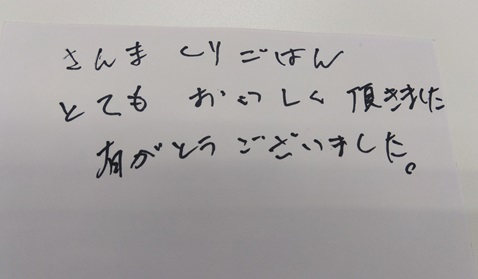 さんま くりごはん
とても おいしく 頂きました
有がとうございました。